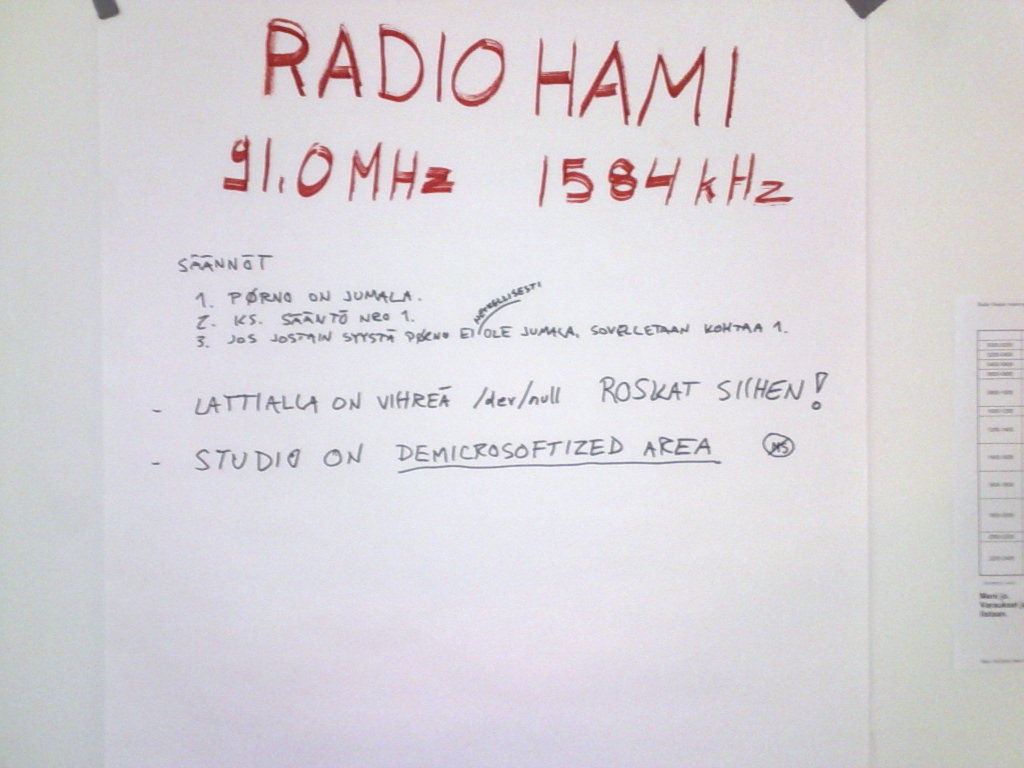 RADIO HAMI
91.0 MHz 1584 kHz
SÄÄNNÖT
1. PØRNO ON JUMALA.
2. KS. SÄÄNTÖ NRO 1.
HETKELLISESTI
3. JOS JOSTAIN SYYSTÄ PØRNO EI OLE JUMALA, SOVELLETAAN KOHTAA 1.
- LATTIALLA ON VIHREÄ /dev/null ROSKAT SIIHEN!
- STUDIO ON DEMICROSOFTIZED AREA MS
Meni jo.
Varaukset
listaan.